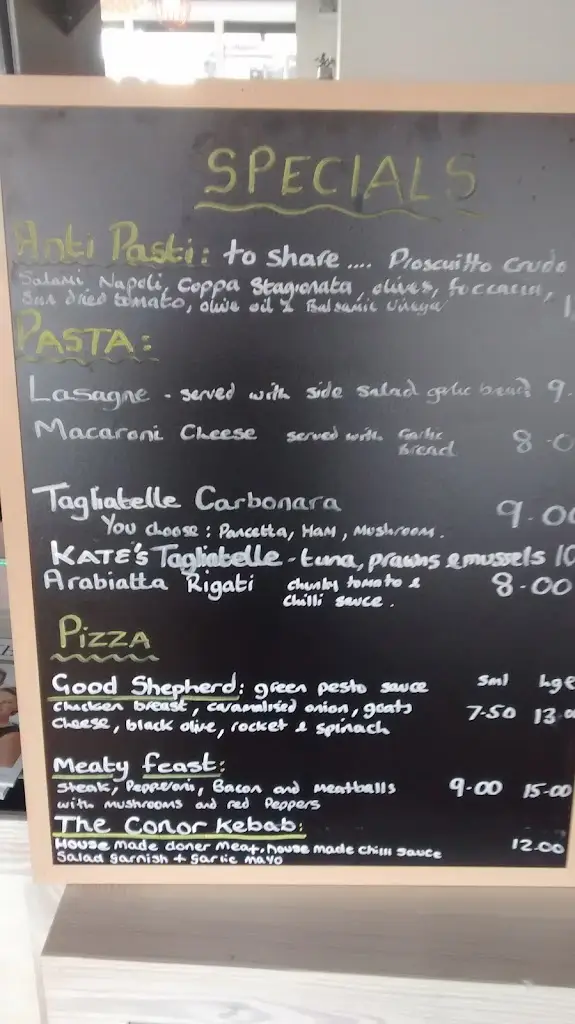 SPECIALS
Anti Pasti: to share .... Proscuitto Crudo
Salami Napoli, Coppa Stagionata, olives, foccacia,
Sun dried tomato, olive oil & Balsamic vinegar
PASTA:
Lasagne - served with side salad garlic bread 9.
Macaroni Cheese served with Garlic 8-0
Bread
Tagliatelle Carbonara 9.00
You choose: Pancetta, Ham, Mushroom.
KATE'S Tagliatelle - tuna, prawns & mussels 10
Arabiatta Rigati chunky tomato & 8-00
chilli sauce.
Pizza
Good Shepherd: green pesto sauce sml Lge
chicken breast, caramalised onion, goats 7-50 13-00
cheese, black olive, rocket & spinach
Meaty feast:
Steak, Pepperoni, Bacon and meatballs 9-00 15-00
with mushrooms and red Peppers
The Conor Kebab:
House made doner meat, house made chilli sauce 12.00
Salad garnish + garlic mayo